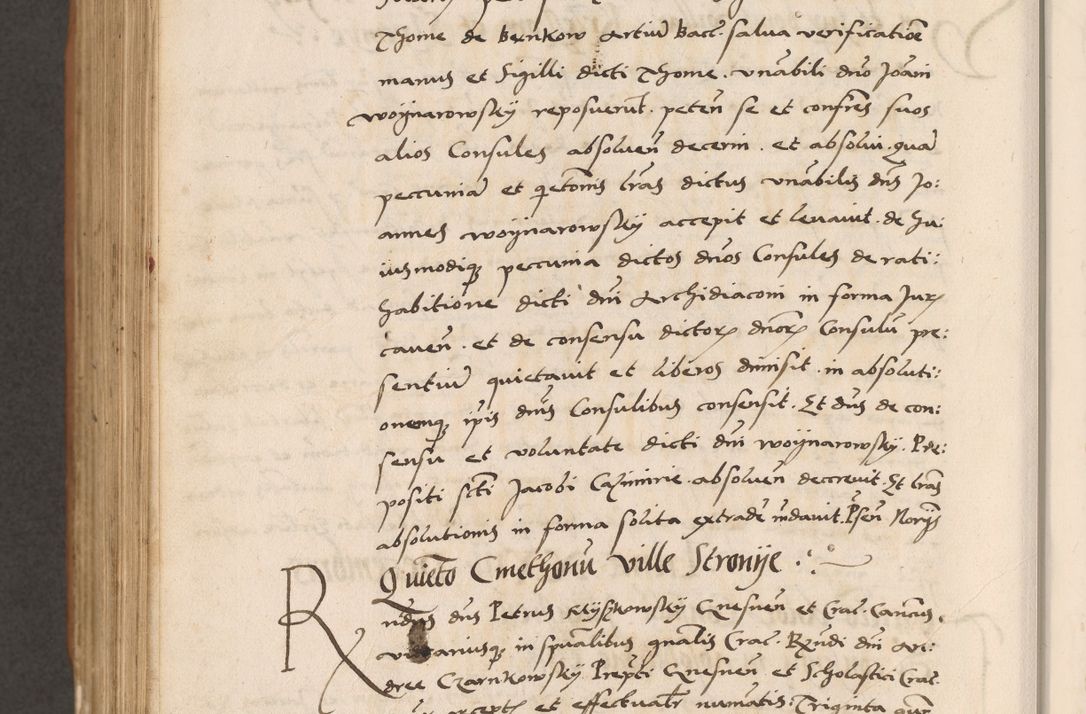 Thome de Bernkow Artiũ Bacc. salua verificatiõe
manus et Sigilli dicti Thome. vnãbili dño Joãni
woynarowsky reposuerũt. peteñ se et confrẽs suos
alios Consules absolueñ decerni. et absolui. quã
peccuniã et qietõnis lrãs dictus vnãbilis dñs Jo:
annes woynarowsky accepit et leuauit. de hu:
iusmodiqꝫ peccunia dictos dños Consules de rati:
habitione dicti dñi Archidiaconi in forma Juris
caueñ. et de consensu dictorꝫ dñorꝫ Consulũ pre:
sentiũ quietauit et liberos dimisit. in absoluti:
onemqꝫ ipĩs dñis Consulibus consensit. Et dñs de con:
sensu et voluntate dicti dñi woynarowsky. Pre:
positi sc̃ti Jacobi Cazimirie. absolueñ decreuit. Et lrãs
absolutionis in forma solita extradẽ mãdauit. Pr̃señ Norijs
Quietõ Cmethonũ ville Stronije
Rndus dñs Petrus Gnesneñ et Crac. Canõicus.
vicariusqꝫ in spũalibus gñalis Crac. Rx̃ndi dñi An:
dree Czarnkowsky. Prep̃ti Gnesneñ et Scholastici Crac.
et effectualr̃ numatis: Triginta